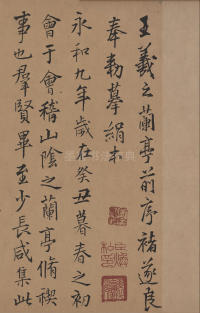 王羲之蘭亭前序褚遂良
奉勅摹絹本
永和九年歲在癸丑暮春之初
會于會稽山陰之蘭亭脩稧
事也羣賢畢至少長咸集此